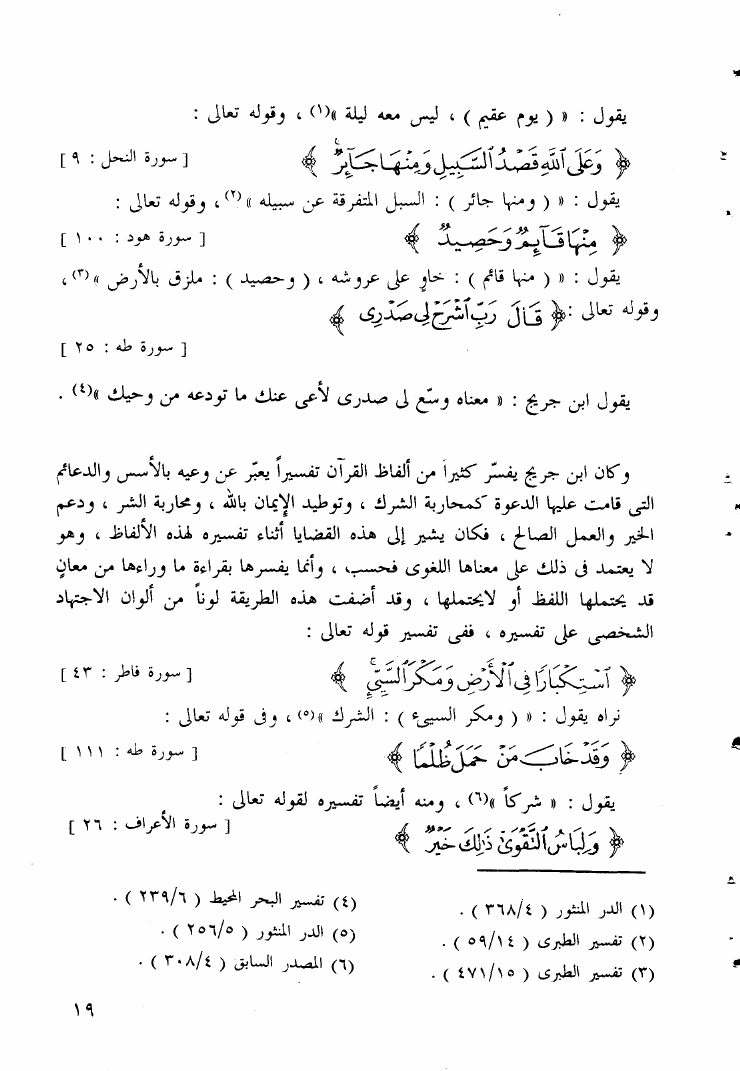 يقول : « ( يوم عقيم ) ، ليس معه ليلة »(١) ، وقوله تعالى :
﴿ وَعَلَى ٱللَّهِ قَصْدُ ٱلسَّبِيلِ وَمِنْهَا جَآئِرٌ ﴾ [ سورة النحل : ٩ ]
يقول : « ( ومنها جائر ) : السبل المتفرقة عن سبيله »(٢) ، وقوله تعالى :
﴿ مِنْهَا قَآئِمٌ وَحَصِيدٌ ﴾ [ سورة هود : ١٠٠ ]
يقول : « ( منها قائم ) : خاوٍ على عروشه ، ( وحصيد ) : ملزق بالأرض »(٣) ،
وقوله تعالى : ﴿ قَالَ رَبِّ ٱشْرَحْ لِى صَدْرِى ﴾
[ سورة طه : ٢٥ ]
يقول ابن جريج : « معناه وسّع لى صدرى لأعى عنك ما تودعه من وحيك »(٤) .
وكان ابن جريج يفسّر كثيراً من ألفاظ القرآن تفسيراً يعبّر عن وعيه بالأسس والدعائم
التى قامت عليها الدعوة كمحاربة الشرك ، وتوطيد الإيمان بالله ، ومحاربة الشر ، ودعم
الخير والعمل الصالح ، فكان يشير إلى هذه القضايا أثناء تفسيره لهذه الألفاظ ، وهو
لا يعتمد فى ذلك على معناها اللغوى فحسب ، وأنما يفسرها بقراءة ما وراءها من معانٍ
قد يحتملها اللفظ أو لايحتملها ، وقد أضفت هذه الطريقة لوناً من ألوان الاجتهاد
الشخصى على تفسيره ، ففى تفسير قوله تعالى :
﴿ ٱسْتِكْبَارًا فِى ٱلْأَرْضِ وَمَكْرَ ٱلسَّيِّئِ ﴾ [ سورة فاطر : ٤٣ ]
نراه يقول : « ( ومكر السيىء ) : الشرك »(٥) ، وفى قوله تعالى :
﴿ وَقَدْ خَابَ مَنْ حَمَلَ ظُلْمًا ﴾ [ سورة طه : ١١١ ]
يقول : « شركاً »(٦) ، ومنه أيضاً تفسيره لقوله تعالى :
﴿ وَلِبَاسُ ٱلتَّقْوَىٰ ذَٰلِكَ خَيْرٌ ﴾ [ سورة الأعراف : ٢٦ ]
(١) الدر المنثور ( ٣٦٨/٤ ) .
(٢) تفسير الطبرى ( ٥٩/١٤ ) .
(٣) تفسير الطبرى ( ٤٧١/١٥ ) .
(٤) تفسير البحر المحيط ( ٢٣٩/٦ ) .
(٥) الدر المنثور ( ٢٥٦/٥ ) .
(٦) المصدر السابق ( ٣٠٨/٤ ) .
١٩